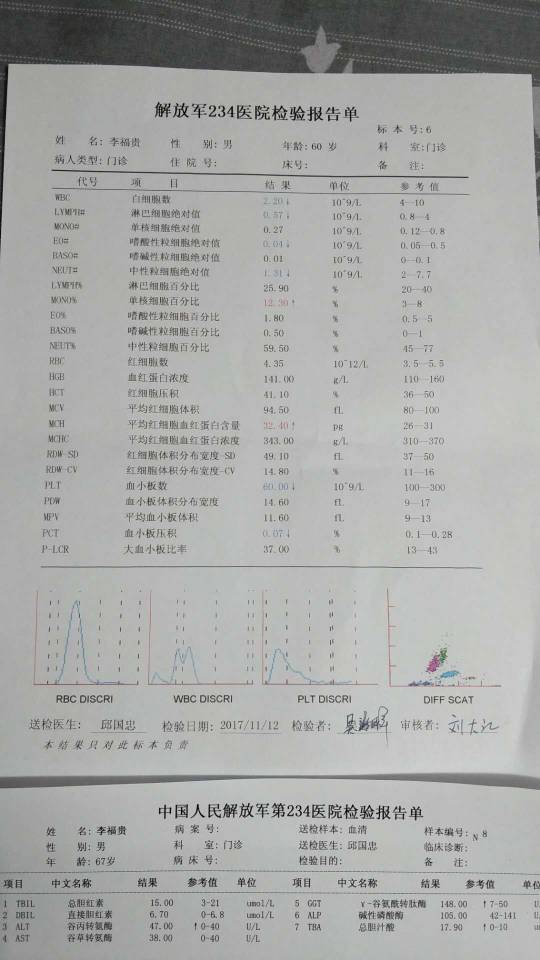 解放军234医院检验报告单
标 本 号: 6
姓 名: 李福贵 性 别: 男 年龄: 60 岁 科 室: 门诊
病人类型: 门诊 住 院 号: 床号: 备 注:
代号 项 目 结 果 单位 参 考 值
WBC 白细胞数 2.20↓ 10^9/L 4—10
LYMPH# 淋巴细胞绝对值 0.57↓ 10^9/L 0.8—4
MONO# 单核细胞绝对值 0.27 10^9/L 0.12—0.8
EO# 嗜酸性粒细胞绝对值 0.04↓ 10^9/L 0.05—0.5
BASO# 嗜碱性粒细胞绝对值 0.01 10^9/L 0—0.1
NEUT# 中性粒细胞绝对值 1.31↓ 10^9/L 2—7.7
LYMPH% 淋巴细胞百分比 25.90 % 20—40
MONO% 单核细胞百分比 12.30↑ % 3—8
EO% 嗜酸性粒细胞百分比 1.80 % 0.5—5
BASO% 嗜碱性粒细胞百分比 0.50 % 0—1
NEUT% 中性粒细胞百分比 59.50 % 45—77
RBC 红细胞数 4.35 10^12/L 3.5—5.5
HGB 血红蛋白浓度 141.00 g/L 110—160
HCT 红细胞压积 41.10 % 36—50
MCV 平均红细胞体积 94.50 fL 80—100
MCH 平均红细胞血红蛋白含量 32.40↑ pg 26—31
MCHC 平均红细胞血红蛋白浓度 343.00 g/L 310—370
RDW-SD 红细胞体积分布宽度-SD 49.10 fL 37—50
RDW-CV 红细胞体积分布宽度-CV 14.80 % 11—16
PLT 血小板数 60.00↓ 10^9/L 100—300
PDW 血小板体积分布宽度 14.60 fL 9—17
MPV 平均血小板体积 11.60 fL 9—13
PCT 血小板压积 0.07↓ % 0.1—0.28
P-LCR 大血小板比率 37.00 % 13—43
RBC DISCRI WBC DISCRI PLT DISCRI DIFF SCAT
送检医生: 邱国忠 检验日期: 2017/11/12 检验者: 审核者: 刘大江
本 结 果 只 对 此 标 本 负 责
中国人民解放军第234医院检验报告单
姓 名: 李福贵 病 案 号: 送检样本: 血清 样本编号: N 8
性 别: 男 科 室: 门诊 送检医生: 邱国忠 临床诊断:
年 龄: 67岁 病 床 号: 检验目的: 备 注:
项目 中文名称 结果 参考值 单位 项目 中文名称 结果 参考值 单位
1 TBIL 总胆红素 15.00 3-21 umol/L 5 GGT γ-谷氨酰转肽酶 148.00 ↑7-50 U/
2 DBIL 直接胆红素 6.70 0-6.8 umol/L 6 ALP 碱性磷酸酶 105.00 42-141 U/
3 ALT 谷丙转氨酶 47.00 ↑0-40 U/L 7 TBA 总胆汁酸 17.90 ↑0-10 u
4 AST 谷草转氨酶 38.00 0-40 U/L